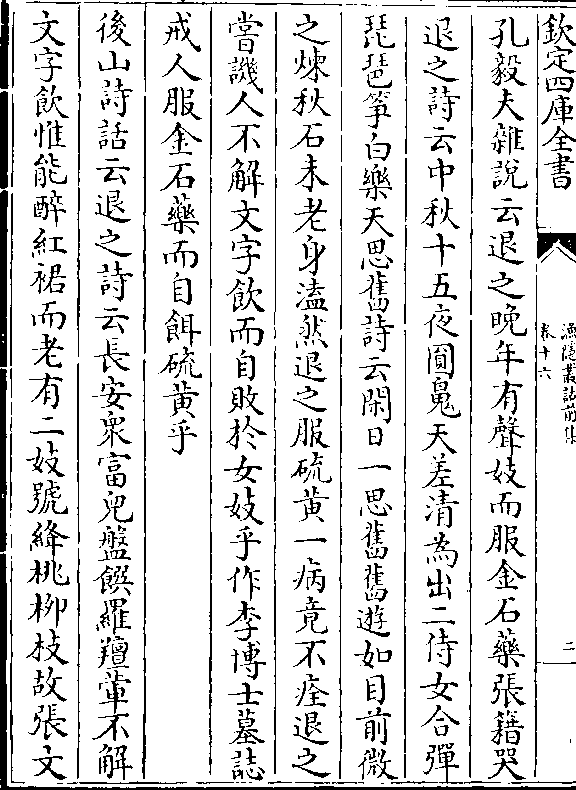 欽定四庫全書
漁隱叢話前集
卷十六
二
孔毅夫雜說云退之晚年有聲妓而服金石藥張籍哭
退之詩云中秋十五夜圓魄天差清為出二侍女合彈
琵琶箏白樂天思舊詩云閑日一思舊舊遊如目前微
之煉秋石未老身溘然退之服硫黄一病竟不痊退之
嘗譏人不解文字飲而自敗於女妓乎作李博士墓誌
戒人服金石藥而自餌硫黄乎
後山詩話云退之詩云長安衆富兒盤饌羅羶葷不解
文字飲惟能醉紅裙而老有二妓號絳桃柳枝故張文